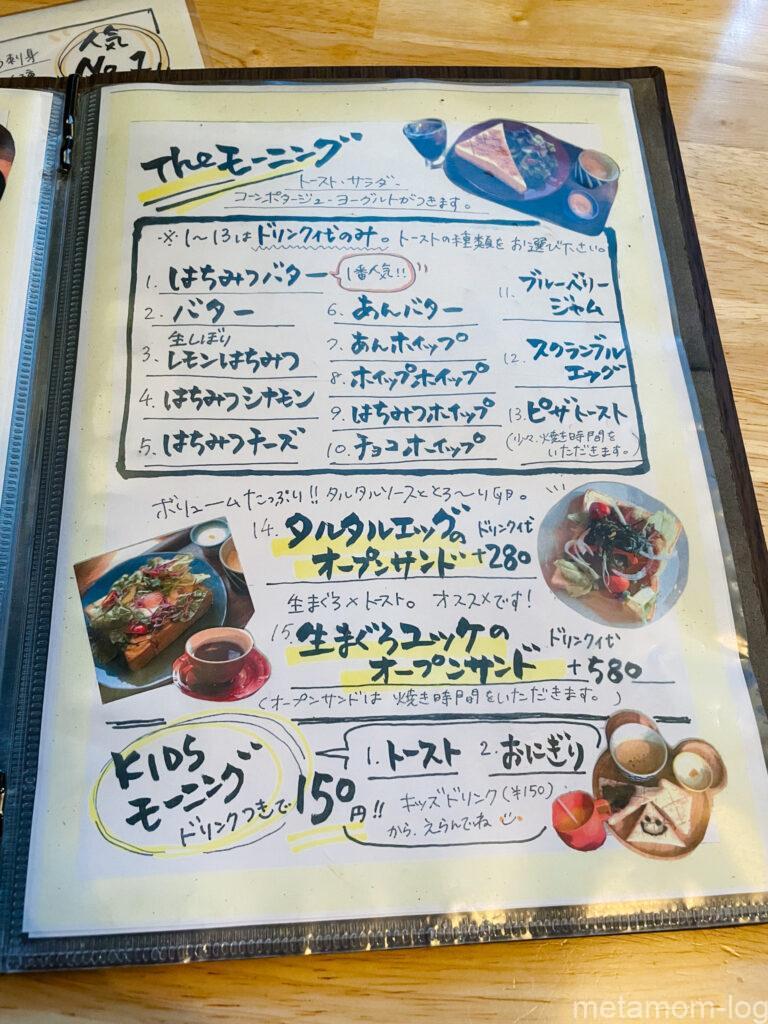 人気
No.1
Theモーニング
トースト・サラダ・
コーンポタージュ・ヨーグルトがつきます。
※1〜13はドリンク代のみ。トーストの種類をお選び下さい。
1. はちみつバター 1番人気!!
2. バター
生しぼり
3. レモンはちみつ
4. はちみつシナモン
5. はちみつチーズ
6. あんバター
7. あんホイップ
8. ホイップホイップ
9. はちみつホイップ
10. チョコホイップ
11. ブルーベリー
ジャム
12. スクランブル
エッグ
13. ピザトースト
(少々、焼き時間を
いただきます。)
ボリュームたっぷり!!タルタルソースととろ〜り卵。
14. タルタルエッグの ドリンク代
オープンサンド +280
生まぐろ×トースト。 オススメです!
15. 生まぐろユッケの ドリンク代
オープンサンド +580
(オープンサンドは 焼き時間をいただきます。)
KIDS
モーニング
ドリンクつきで
150円!!
1. トースト 2. おにぎり
キッズドリンク(¥150)
から、えらんでね
metamom-log